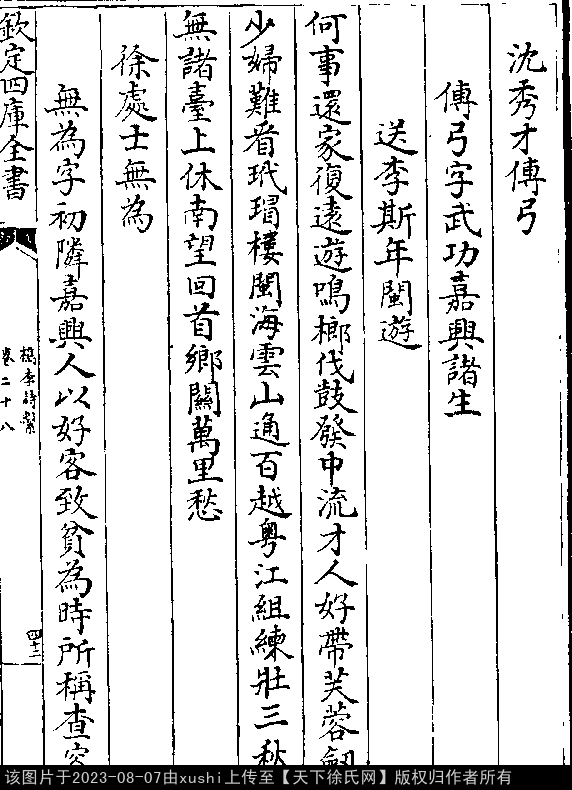 沈秀才傅弓
傅弓字武功嘉興諸生
送李斯年閩遊
何事還家復遠遊鳴榔伐鼓發中流才人好帶芙蓉劒
少婦難看玳瑁樓閩海雲山通百越粤江組練壯三秋
無諸臺上休南望回首鄉關萬里愁
徐處士無為
無為字初隣嘉興人以好客致貧為時所稱查客
欽定四庫全書
檇李詩繫
卷二十八
四十二
该图片于2023-08-07由xushi上传至【天下徐氏网】版权归作者所有